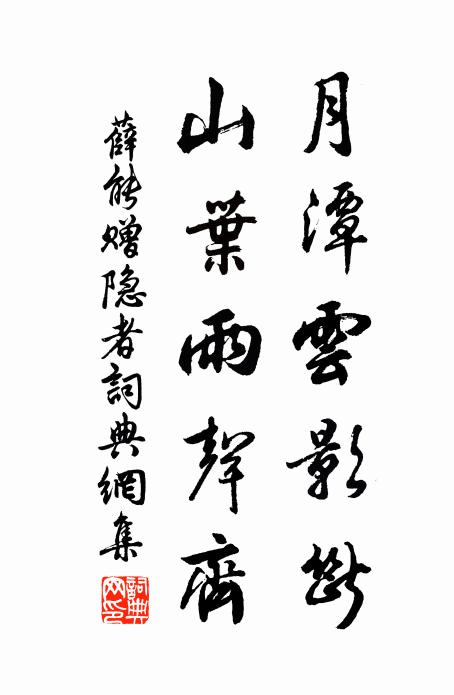 月潭雲影斷
山葉雨聲齊
薛能贈隐者詞典網集
詞典網印